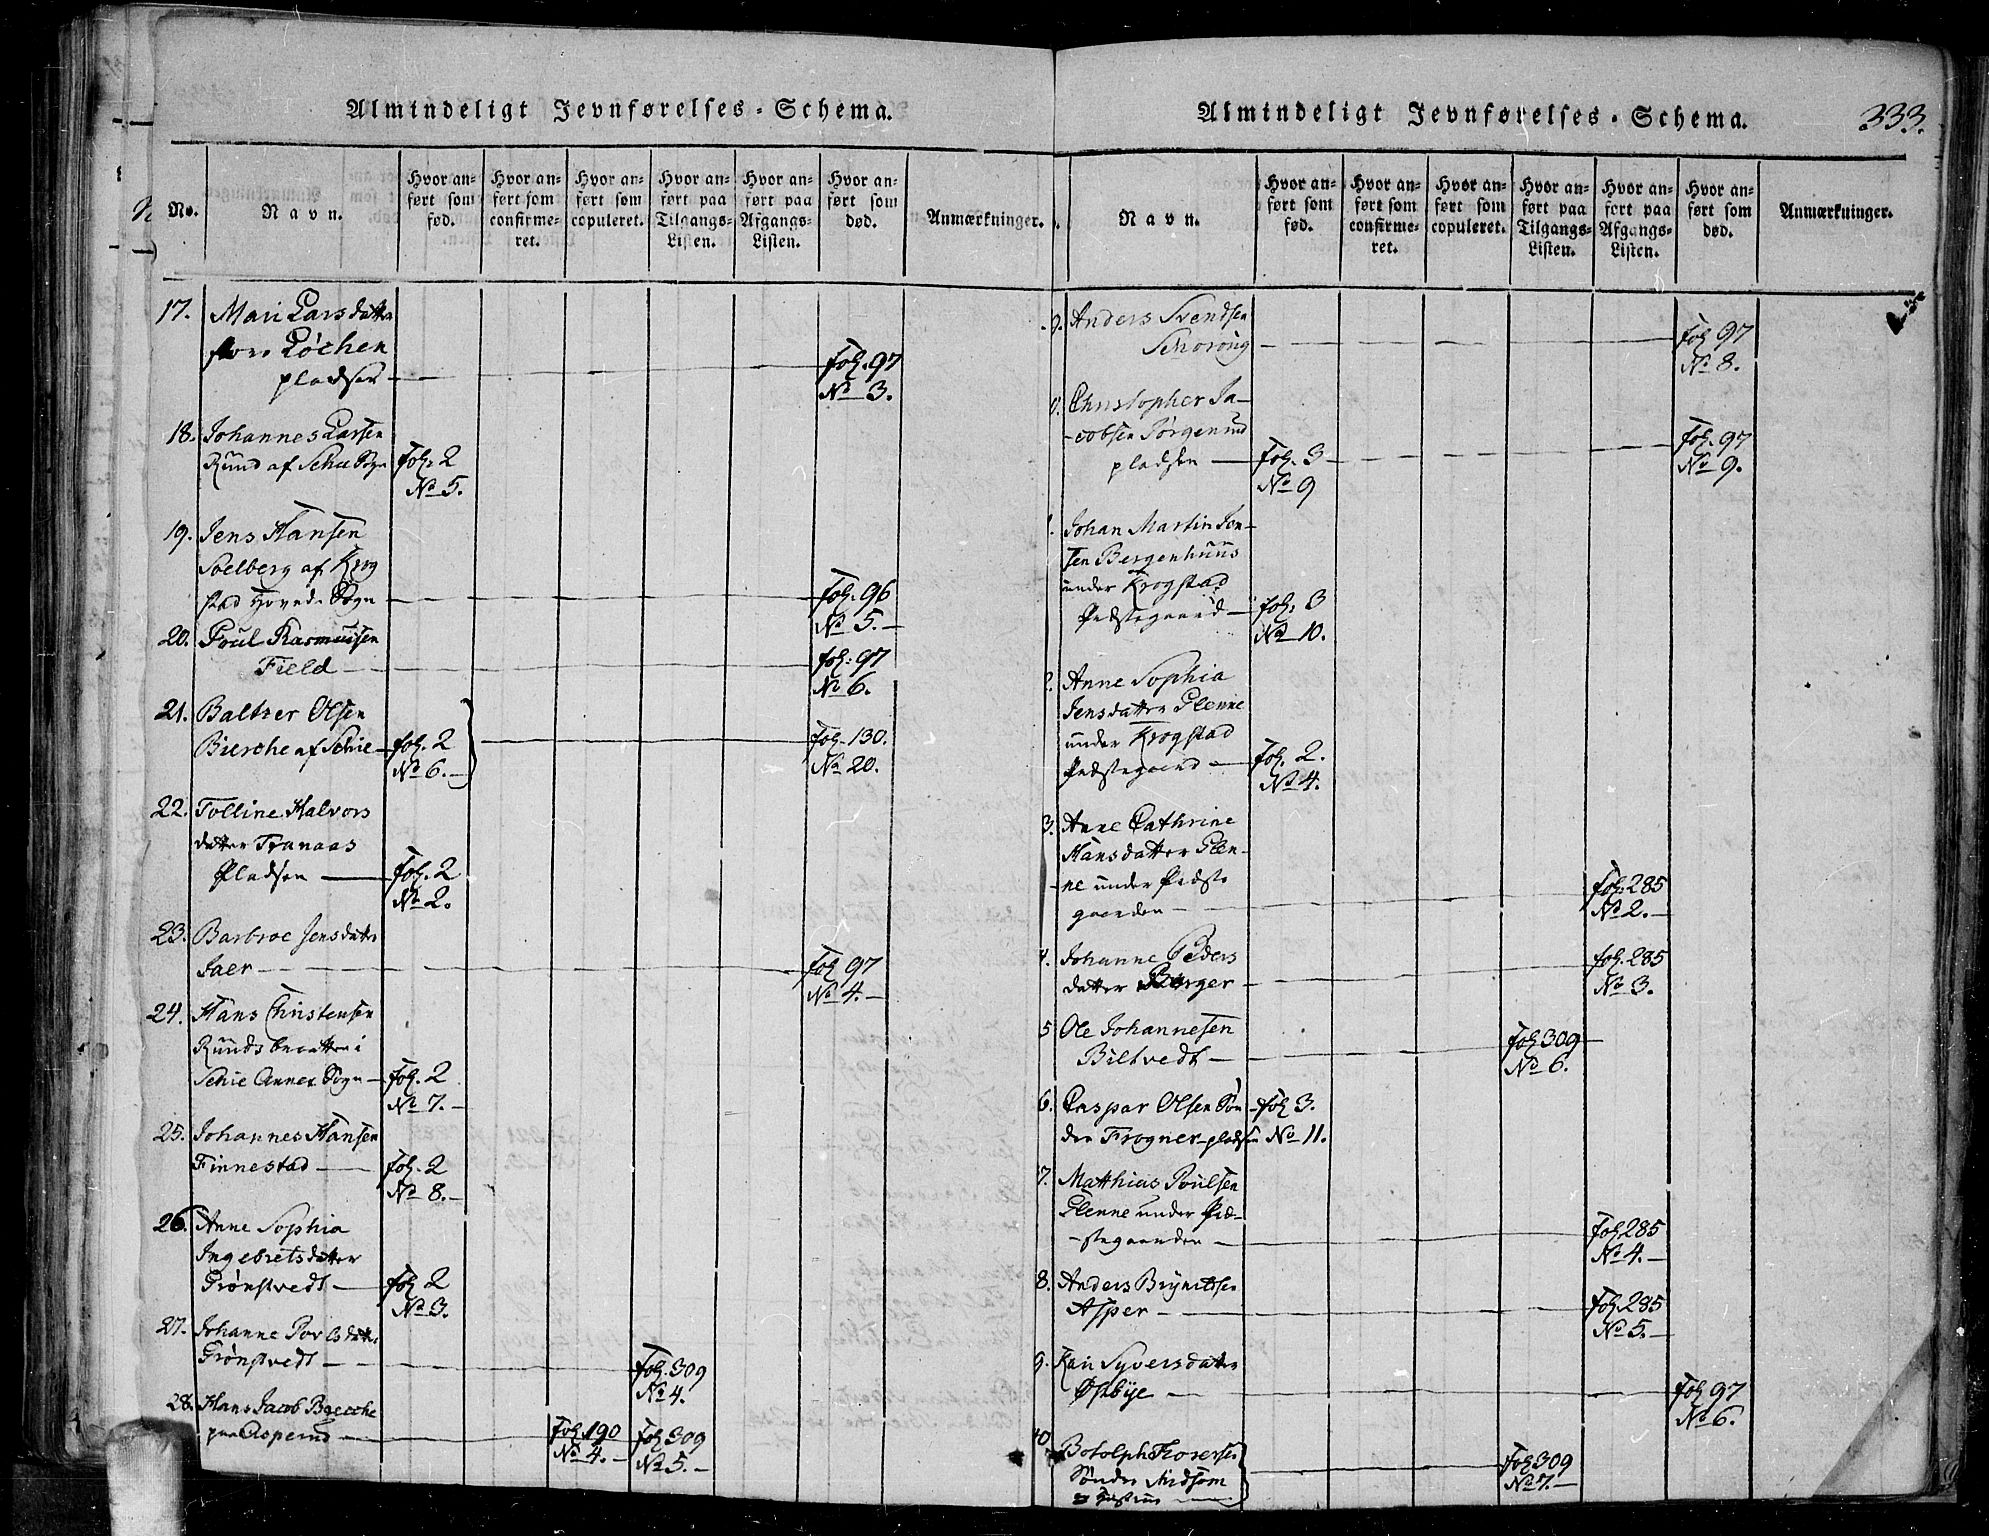 Almindeligt Jevnførelses-Schema.
No.
Navn.
Hvor an-
ført som
fød.
Hvor an-
ført som
confirme-
ret.
Hvor an-
ført som
copuleret.
Hvor an-
ført paa
Tilgangs-
Listen.
Hvor an-
ført paa
Afgangs-
Listen.
Hvor an-
ført som
død.
Anmærkninger.
17. Mari Larsdatter
Løchen
pladsen — fol. 97
No 3.
18. Johannes Larsen
Rund af Schie Sogn fol: 2
No 5.
19. Jens Hansen
Solberg af Krog
stad Hoved Sogn — fol. 96
No 5. —
20. Poul Rasmussen
Field — fol: 97
No 6.
21. Baltzer Olsen
Bierche af Schie — fol. 2 — fol. 130.
No 6. — No 20.
22. Tolline Halvors
datter Tranaas
Pladsen — fol. 2
No 2.
23. Barbroe Jensdatter
Jaer — fol 97
No 4. —
24. Hans Christensen
Runds
Schie Annex Sogn — fol. 2
No 7. —
25. Johannes Hansen
Finnestad — fol. 2
No 8. —
26. Anne Sophia
Ingebretsdatter
Grønstvedt — fol 2
No 3.
27. Johanne Povelsdatter
Grønstvedt — fol. 309
No 4.
28. Hans Jacob Brecche
paa Asperud — fol. 190 fol 309
No 4. — No 5. —
Almindeligt Jevnførelses-Schema. 333.
Navn.
Hvor an-
ført som
fød.
Hvor an-
ført som
confirme-
ret.
Hvor an-
ført som
copuleret.
Hvor an-
ført paa
Tilgangs-
Listen.
Hvor an-
ført paa
Afgangs-
Listen.
Hvor an-
ført som
død.
Anmærkninger.
9. Anders Svendsen
— fol 97
No 8.
0. Christopher Ja-
-cobsen Jørgenrud
pladsen — fol. 3 — fol. 97
No 9 No 9.
1. Johan Martin Jon-
sen Bergenhuus
under Krogstad
Præstegaard — fol: 3
No 10.
2. Anne Sophia
Jensdatter Glenne
under Krogstad
Præstegaard — fol. 2.
No 4.
3. Anne Cathrine
Hansdatter Glen-
-ne under Præste
gaarden — fol. 285
No 2. —
4. Johanne Peders
datter Berger — fol. 285
No 3.
5 Ole Johannesen
Biltvedt — fol 309 —
No 6.
6. Caspar Olsen Søn-
dre Frogner pladsen fol 3.
No 11.
7. Matthias Poulsen
Glenne under Præ-
-stegaarden — fol 285
No 4. —
8. Anders Brynildsen
Asper — fol 285
No 5. —
9. Kari Syversdatter
Østbye — fol 97
No 6.
40 Botolph Thoresen
Søndre
— fol 309
No 7. —